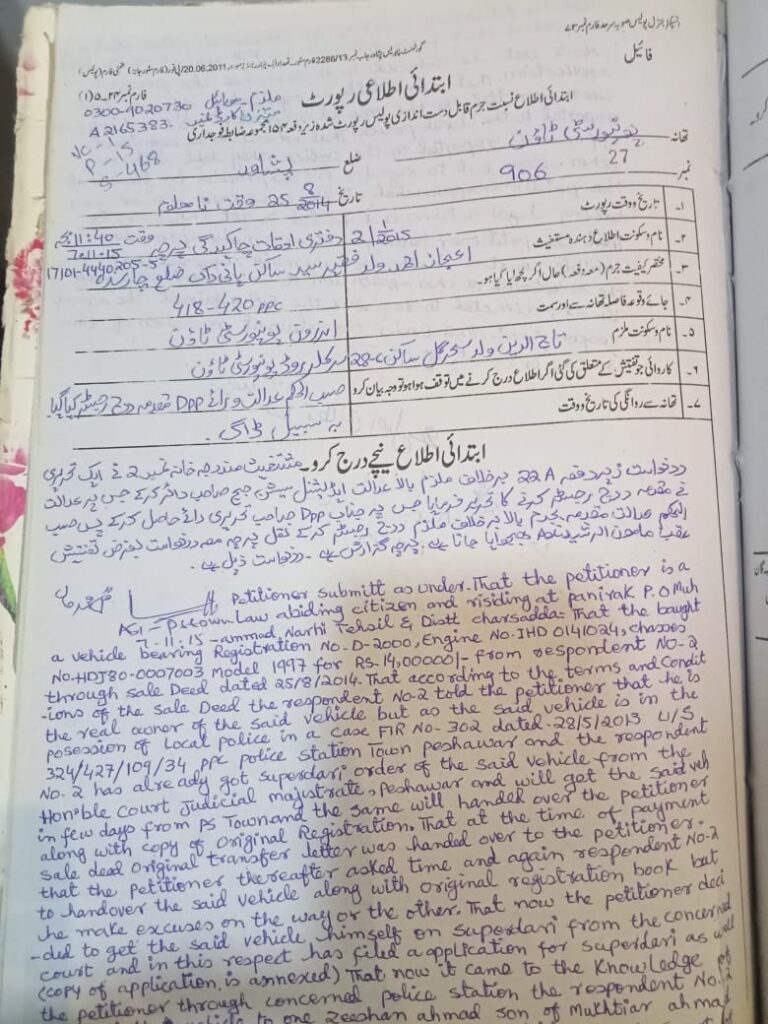 انسپکٹر جنرل پولیس صوبہ سرحد فارم نمبر ۲۳
فائیل
ابتدائی اطلاعی رپورٹ
فارم نمبر ۲۴۔۵(۱)
ابتدائی اطلاع نسبت جرم قابل دست اندازی پولیس رپورٹ شدہ زیر دفعہ ۱۵۴ مجموعہ ضابطہ فوجداری
0300-9020730
A 2165383.
P-15
S-468
تھانہ یونیورسٹی ٹاؤن ضلع پشاور
27
نمبر 906 تاریخ 25 8/2014 وقت نا معلوم
۱۔ تاریخ و وقت رپورٹ
2/1/2015 وقت 11:40 7.11.15
۲۔ نام و سکونت اطلاع دہندہ مستغیث
اعجاز احمد ولد سید ساکن ضلع چارسدہ 17101-4440205-5
۳۔ مختصر کیفیت جرم (معہ دفعہ) حال اگر کچھ لیا گیا ہو۔
418-420 PPC
۴۔ جائے وقوعہ فاصلہ تھانہ سے اور سمت
اندرون یونیورسٹی ٹاؤن
۵۔ نام و سکونت ملزم
تاج الدین ولد سحر گل ساکن سرکلر روڈ یونیورسٹی ٹاؤن
۶۔ کاروائی جو تفتیش کے متعلق کی گئی اگر اطلاع درج کرنے میں توقف ہوا ہو تو وجہ بیان کرو
حسب الحکم عدالت و رائے DPP مقدمہ درج رجسٹر کیا گیا
۷۔ تھانہ سے روانگی کی تاریخ و وقت
بہ سبیل ڈاک۔
ابتدائی اطلاع نیچے درج کرو۔ مستغیث مندرجہ خانہ نمبر 2 نے ایک تحریری
درخواست زیر دفعہ 22A برخلاف ملزم بالا عدالت ایڈیشنل سیشن جج صاحب دائر کرکے جس پر عدالت
نے مقدمہ درج رجسٹر کرنے کا تحریر فرمایا جس پر جناب DPP صاحب تحریری رائے حاصل کرکے پس حسب
الحکم عدالت مقدمہ بجرم بالا برخلاف ملزم درج رجسٹر کرکے نقل پرچہ معہ درخواست بغرض تفتیش
پرچہ گزارش ہے۔ درخواست ذیل ہے۔
Petitioner submitt as under. That the petitioner is a
ASI - PS Town Law abiding citizen and risiding at panirak P.O Muh
7-11-15 -ammad Narhi Tehsil & Distt charsadda. That the baught
a vehicle bearing Registration No. D-2000, Engine No. IHD 0141024, chasses
No. HDJ80-0007003 Model 1997 for RS-14,00000/- from respondent No-2
through sale Deed dated 25/8/2014. That according to the terms and Condit
-ions of the sale Deed the respondent No-2 told the petitioner that he is
the real owner of the said vehicle but as the said vehicle is in the
posession of Local police in a case FIR No- 302 dated-28/5/2013 U/S
324/427/109/34 PPC police station Town peshawar and the respondent
No. 2 has already got superdari order of the said vehicle from the
Hon'ble Court Judicial majustrate, Peshawar and will got the said veh
in few days from PS Town and the same will handed over the petitioner
along with copy of original Registration. That at the time of payment
sale dead original transfer letter was handed over to the petitioner.
that the petitioner thereafter asked time and again respondent No-2
to handover the said vehicle along with original registration book but
he make excuses on the way or the other. That now the petitioner deci
-ded to get the said vehicle himself on superdari from the concerned
court and in this respect has filed a application for superdari as well
(copy of application is annexed) That now it came to the Knowledge of
the petitioner through concerned police station the respondent No. 2
vehicle to one Zeeshan ahmad son of Mukhtiar ahmad